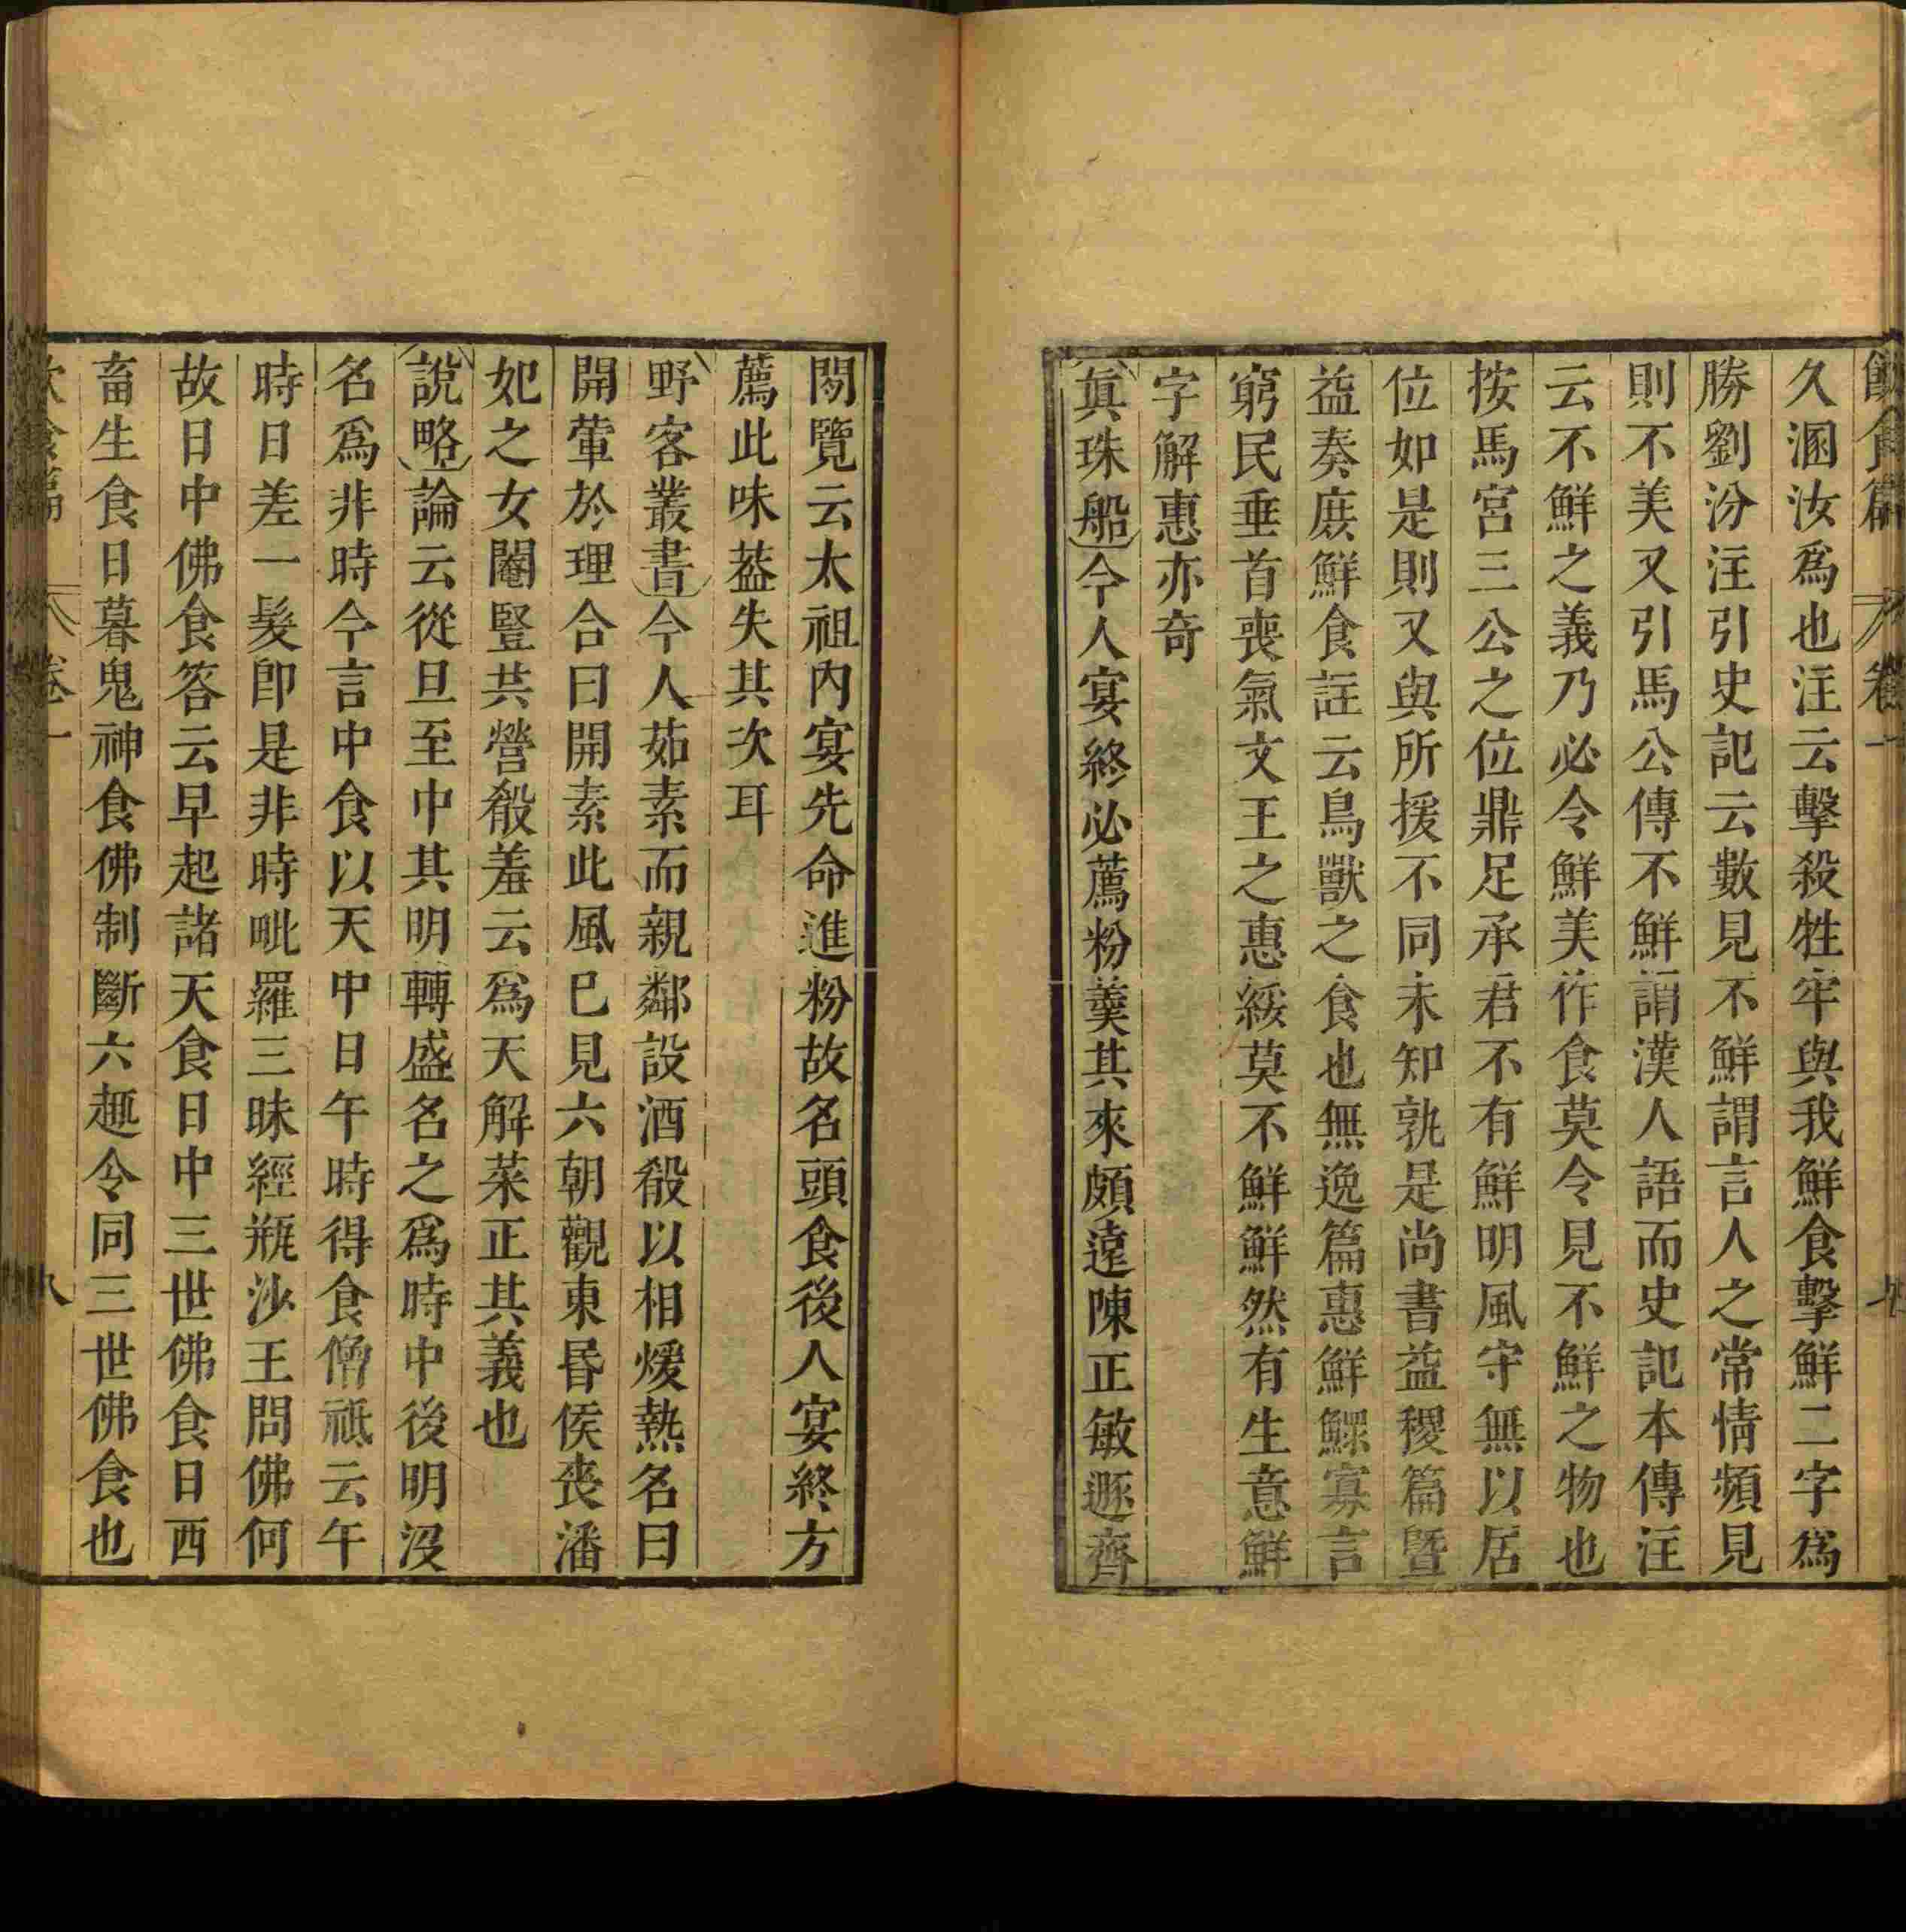 飲食篇 卷一 七
久溷汝爲也注云擊殺牲牢與我鮮食擊鮮二字爲
勝劉汾注引史記云數見不鮮謂言人之常情頻見
則不美又引馬公傳不鮮謂漢人語而史記本傳注
云不鮮之義乃必令鮮美作食莫令見不鮮之物也
按馬宮三公之位鼎足承君不有鮮明風守無以居
位如是則又與所援不同未知孰是尚書益稷篇暨
益奏庶鮮食註云鳥獸之食也無逸篇惠鮮鰥寡言
窮民垂首喪氣文王之惠綏莫不鮮鮮然有生意鮮
字解惠亦奇
眞珠船今人宴終必薦粉羹其來頗遠陳正敏遯齊
閱覽云太祖內宴先命進粉故名頭食後人宴終方
薦此味葢失其次耳
野客叢書今人茹素而親鄰設酒殽以相煖熱名曰
開葷於理合曰開素此風已見六朝觀東昏侯喪潘
妃之女閹豎共營殽羞云爲天解菜正其義也
說略論云從旦至中其明轉盛名之爲時中後明沒
名爲非時今言中食以天中日午時得食僧祇云午
時日差一髮卽是非時毗羅三昧經瓶沙王問佛何
故日中佛食答云早起諸天食日中三世佛食日西
畜生食日暮鬼神食佛制斷六趣令同三世佛食也
飲食篇 卷一 八